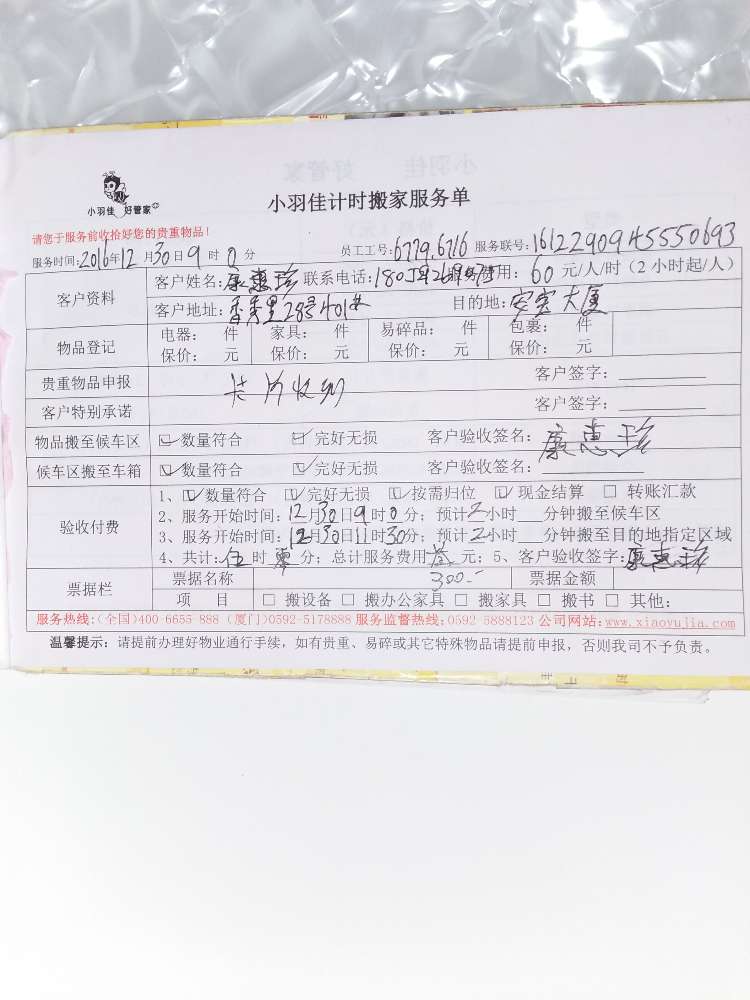 小羽佳 好管家
小羽佳计时搬家服务单
请您于服务前收拾好您的贵重物品!
服务时间:2016年12月30日9时0分 员工工号:6779.6716 服务联号:1612290945550693
客户资料 客户姓名:康惠珍 联系电话:180 用:60元/人/时(2小时起/人)
客户地址:香秀里28号401 目的地:安宝大厦
物品登记 电器: 件 家具: 件 易碎品: 件 包裹: 件
保价: 元 保价: 元 保价: 元 保价: 元
贵重物品申报 客户签字:
客户特别承诺 客户签字:
物品搬至候车区 ☑数量符合 ☑完好无损 客户验收签名:康惠珍
候车区搬至车箱 ☑数量符合 ☑完好无损 客户验收签名:
验收付费 1、☑数量符合 ☑完好无损 ☑按需归位 ☑现金结算 □转账汇款
2、服务开始时间:12月30日9时0分;预计2小时___分钟搬至候车区
3、服务开始时间:12月30日11时30分;预计2小时___分钟搬至目的地指定区域
4、共计:伍时零分;总计服务费用叁元;5、客户验收签字:康惠珍
票据栏 票据名称 300.- 票据金额
项 目 □搬设备 □搬办公家具 □搬家具 □搬书 □其他:
服务热线:(全国)400-6655 888 (厦门)0592-5178888 服务监督热线:0592-5888123 公司网站:www.xiaoyujia.com
温馨提示:请提前办理好物业通行手续,如有贵重、易碎或其它特殊物品请提前申报,否则我司不予负责。